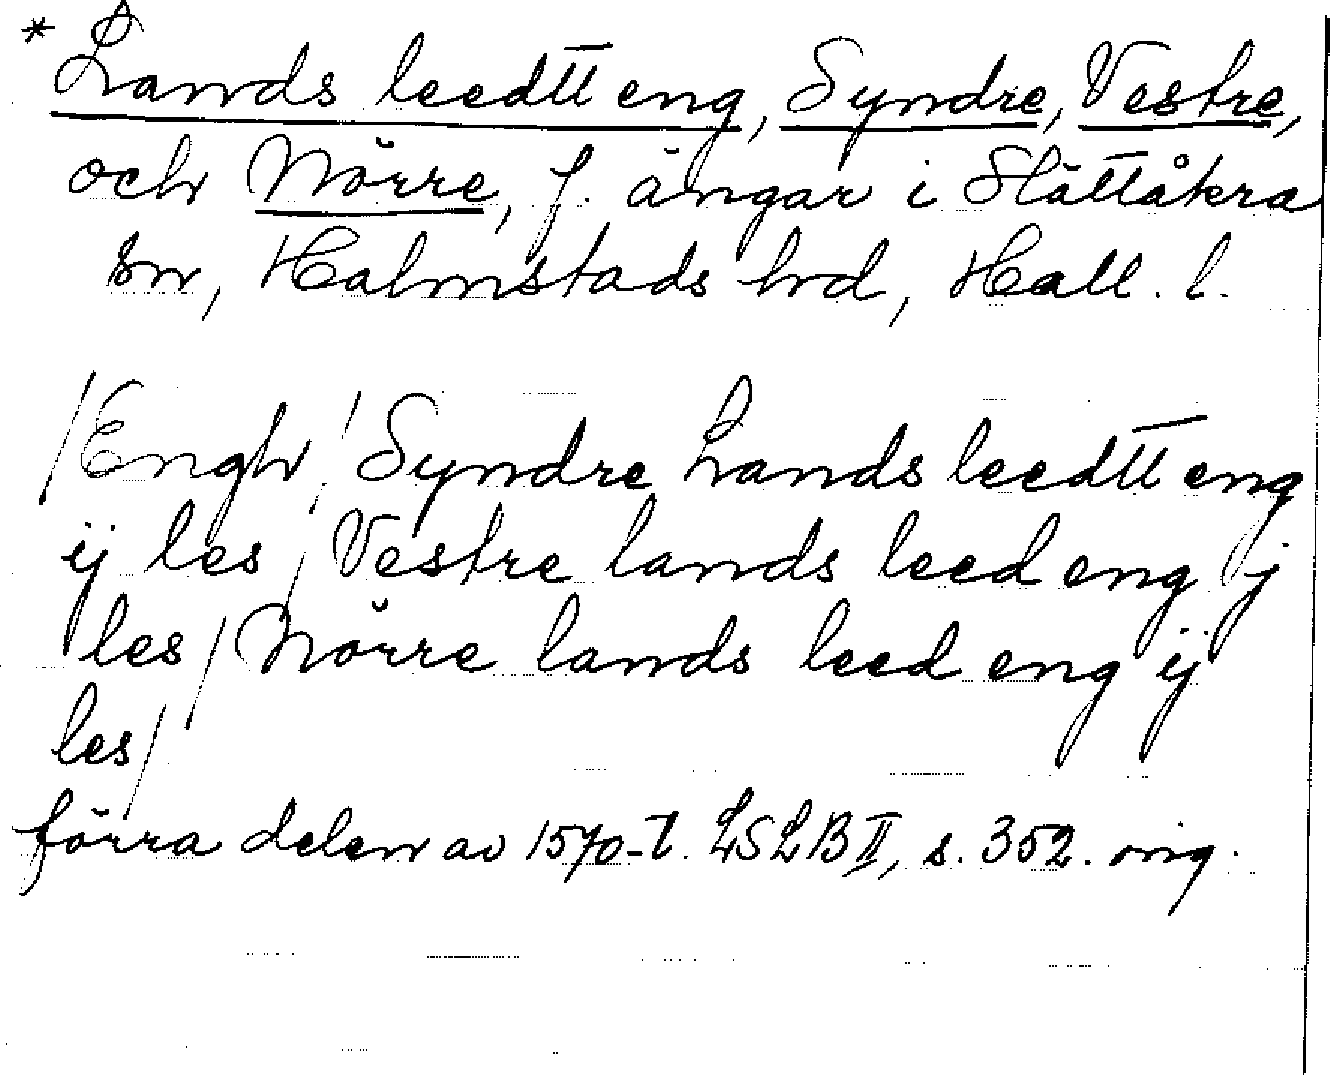 * Lands leedtt eng, Syndre, Vestre,
och Nörre, f. ängar i Slättåkra
sn, Halmstads hd, Hall. l.
/Engh/ Syndre Lands leedtt eng
ij les/ Vestre lands leed eng ij
les/ Nörre lands leed eng ij
les/
förra delen av 1570-t. LSLB II, s. 352. orig.